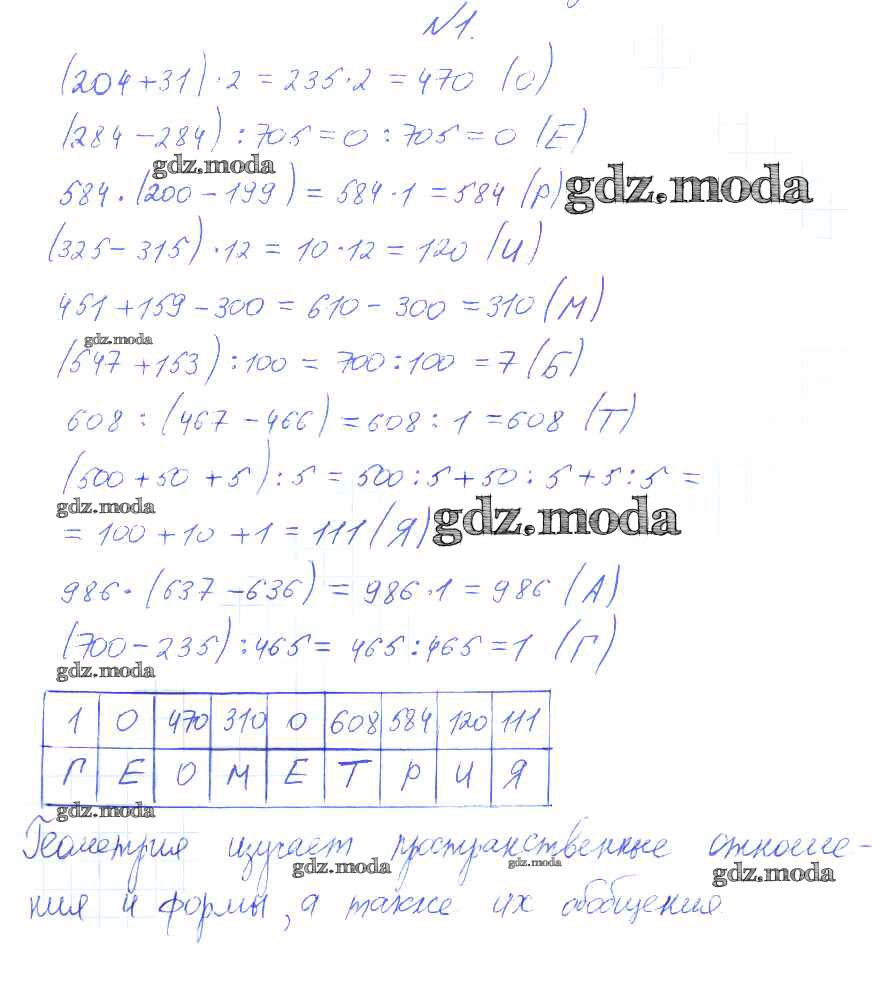 №1.
(204+31)·2=235·2=470 (О)
(284-284):705=0:705=0 (Е)
gdz.moda
584·(200-199)=584·1=584 (Р)
gdz.moda
(325-315)·12=10·12=120 (И)
451+159-300=610-300=310 (М)
gdz.moda
(547+153):100=700:100=7 (Б)
608:(467-466)=608:1=608 (Т)
(500+50+5):5=500:5+50:5+5:5=
gdz.moda
=100+10+1=111 (Я)
gdz.moda
986·(637-636)=986·1=986 (А)
(700-235):465=465:465=1 (Г)
gdz.moda
1 0 470 310 0 608 584 120 111
Г Е О М Е Т Р И Я
gdz.moda
Геометрия изучает пространственные отноше-
gdz.moda
gdz.moda
gdz.moda
ния и формы, а также их обобщения